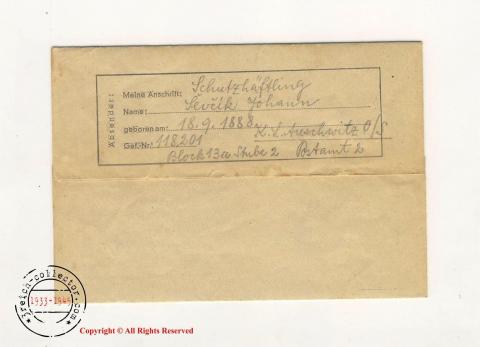 Absender:
Meine Anschrift: Schutzhäftling
Name: Ševčík Johann
geboren am: 18.9.1888. K.L. Auschwitz O/S
Gef.-Nr. 118201
Block 13a Stube 2 Postamt 2
3reich-collector.com
1933-1945
Copyright © All Rights Reserved